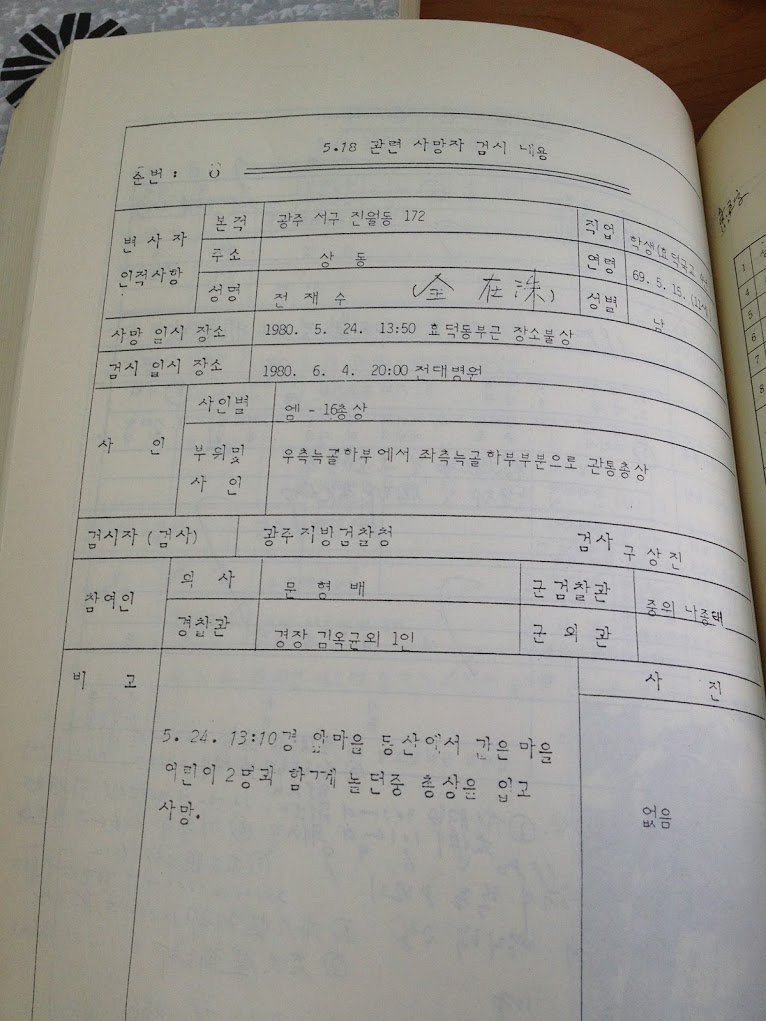 5.18 관련 사망자 검시 내용
순번 :
변사자 인적사항
본적 광주 서구 진월동 172
직업 학생(효덕국교
주소 상 동
연령 69. 5. 15.
성명 전 재 수 (全 在 洙)
성별 남
사망 일시 장소 1980. 5. 24. 13:50 효덕동부근 장소불상
검시 일시 장소 1980. 6. 4. 20:00 전대병원
사 인
사인별 엠 - 16총상
부위및 사 인 우측늑골하부에서 좌측늑골하부부분으로 관통총상
검시자 (검사) 광주지방검찰청 검사 구상진
참여인
의 사 문 형 배
군검찰관 중위 나종태
경찰관 경장 김옥균외 1인
군 의 관
비 고
사 진
5. 24. 13:10경 앞마을 동산에서 같은 마을
어린이 2명과 함께 놀던중 총상을 입고
사망.
없음
1
4
5
6
7
8